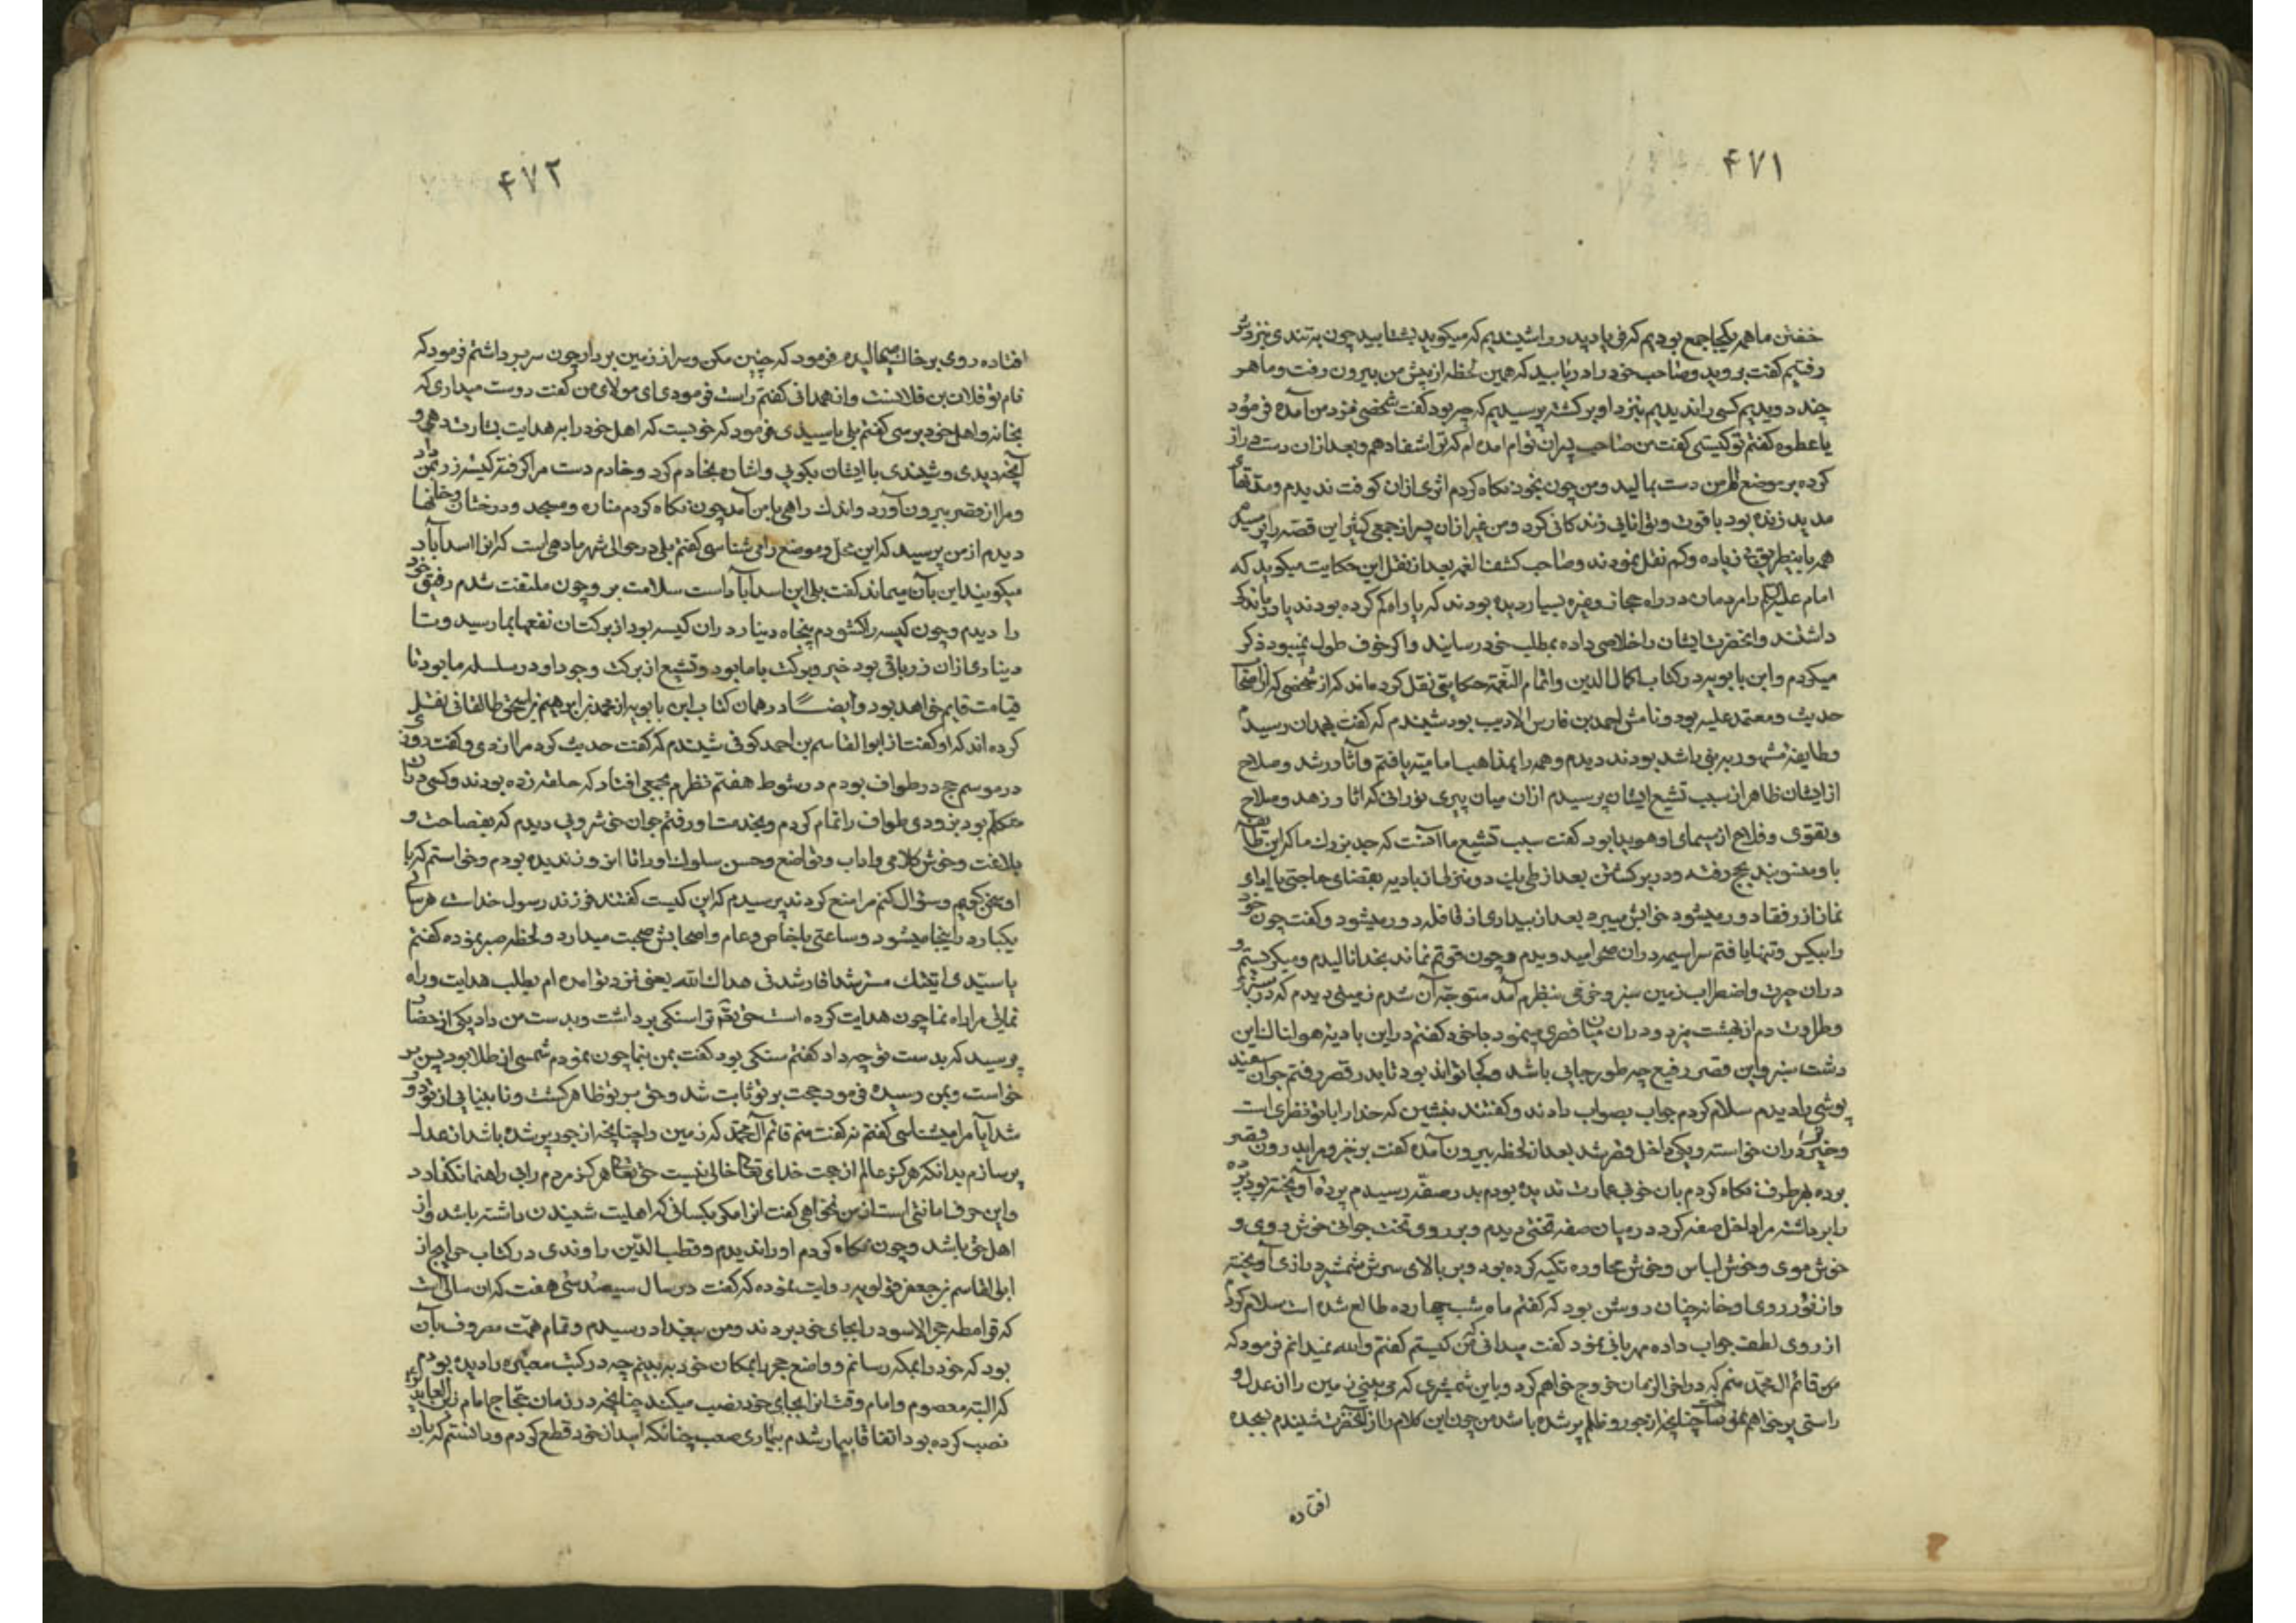 ۴۷۱
خفتن ما همه یکجا جمع بودیم که فریاد پدر را شنیدیم که میکوید بشتابید چون بتندی بنزدش
رفتیم کفت بروید وصاحب خود را دریابید که همین لحظه از پیش من بیرون رفت وما هر
چند دویدیم کسی را ندیدیم بنزد او برکشته پرسیدیم که چه بود کفت شخصی نزد من آمد و فرمود
یا عطوه کفتم تو کیستی کفت من صاحب پسران توام امده ام که ترا شفا دهم وبعد ازان دست دراز
کرده بر موضع الم من دست مالید ومن چون بخود نکاه کردم اثری ازان کوفت ندیدم ومدتهای
مدید زنده بود با قوت وتوانایی زندکانی کرد ومن غیر ازان پسر از جمعی کثیر این قصه را پرسیدم
همه باینطریق بی زیاده وکم نقل نمودند وصاحب کشف الغمه بعد از نقل این حکایت میکوید که
امام علیه السلام را مردمان در راه حجاز وغیره بسیار دیده بودند که یا راه کم کرده بودند یا درماندکی
داشتند وانحضرت ایشان را خلاصی داده بمطلب خود رسانید واکر خوف طول نمیبود ذکر
میکردم وابن بابویه در کتاب اکمال الدین واتمام النعمة حکایتی نقل کرده اند که از شخصی که از اصحاب
حدیث ومعتمد علیه بود ونامش احمد بن فارس الادیب بود شنیدم که کفت بهمدان رسیدم
وطایفه مشهور به بنی راشد بودند دیدم وهمه را بمذهب امامیه یافتم وآثار رشد وصلاح
از ایشان ظاهر از سبب تشیع ایشان پرسیدم ازان میان پیری نورانی که اثار زهد وصلاح
وتقوی وفلاح از سیمای او هویدا بود کفت سبب تشیع ما آنست که جد بزرك ما که این طایفه
باو منسوبند بحج رفته ودر برکشتن بعد از طی یك دو منزل از بادیه بقضای حاجتی یا ادای
نماز از رفقا دور میشود خوابش میبرد بعد از بیداری از قافله دور میشود وکفت چون خود
را بیکس وتنها یافتم سراسیمه دران صحرا میدویدم وچون قوتم نماند بخدا نالیدم ومیکریستم و
دران حیرت واضطراب زمین سبز وخرمی بنظرم آمد متوجه آن شدم زمینی دیدم که در سبزی
وطراوت دم از بهشت میزد ودران میان قصری مینمود با خود کفتم در این بادیه هولناك این
دشت سبز واین قصر رفیع چه طور جایی باشد وکجا تواند بود تا بدر قصر رفتم جوان سفید
پوشی را دیدم سلام کردم جواب بصواب دادند وکفتند بنشین که خدا را با تو نظری است
وخیر تو دران خواسته ویکی داخل قصر شد بعد از لحظه بیرون آمده کفت برخیز ومرا بدرون قصر
برده بهر طرف نکاه کردم بان خوبی عمارت ندیده بودم بدر صفه رسیدم پرده آویخته بود پرده
را برداشته مرا داخل صفه کرد در میان صفه تختی دیدم وبر روی تخت جوانی خوش روی و
خوش موی وخوش لباس وخوش محاوره تکیه کرده بود وبر بالای سرش شمشیر درازی آویخته
واز نور روی او خانه چنان روشن بود که کفتم ماه شب چهارده طالع شده است سلام کردم
از روی لطف جواب داده مهربانی نمود کفت میدانی من کیستم کفتم والله نمیدانم فرمود که
من قائم ال محمد منم که در اخر الزمان خروج خواهم کرد وباین شمشیری که می بینی زمین را از عدل و
راستی پر خواهم نمود چنانچه از جور وظلم پر شده باشد من چون این کلام را از آنحضرت شنیدم بسجده
افتاده
۴۷۲
افتاده روی بر خاك میمالیدم فرمود که چنین مکن وسر از زمین بردار چون سر برداشتم فرمود که
نام تو فلان بن فلانست واز همدانی کفتم راست فرمودی ای مولای من کفت دوست میداری که
بخانه واهل خود برسی کفتم بلی یا سیدی فرمود که خوبست که اهل خود را بر هدایت بشارت دهی و
آنچه دیدی وشنیدی با ایشان بکویی واشاره بخادم کرد وخادم دست مرا کرفته کیسه زر بمن داد
ومرا از قصر بیرون آورد واندك راهی با من آمد چون نکاه کردم مناره ومسجد ودرختان وخانها
دیدم از من پرسید که این محل وموضع را می شناسی کفتم بلی در حوالی شهر ما دهی است که انرا اسدآباد
میکویند این بآن میماند کفت بلی این اسدآباد است سلامت برو چون ملتفت شدم رفیق خود
را دیدم وچون کیسه را کشودم پنجاه دینار دران کیسه بود از برکت ان نفعها بما رسید وتا
دیناری ازان زر باقی بود خیر وبرکت با ما بود وتشیع از برکت وجود او در سلسله ما بود تا
قیامت قایم خواهد بود وایضا در همان کتاب ابن بابویه از محمد بن ابرهیم بن اسحق طالقانی نقل
کرده اند که او کفت از ابو القاسم بن احمد کوفی شنیدم که کفت حدیث کرد مرا ازدی وکفت روزی
در موسم حج در طواف بودم در شوط هفتم نظرم بجمعی افتاد که حلقه زده بودند وکسی دران
متکلم بود بزودی طواف را تمام کردم وبخدمت او رفتم جوان خوشرویی دیدم که بفصاحت و
بلاغت وخوش کلامی واداب وتواضع وحسن سلوك او را تا امروز ندیده بودم وخواستم که با
او سخن کویم وسؤال کنم مرا منع کردند پرسیدم که این کیست کفتند فرزند رسول خداست هر سالی
یکبار در اینجا میشود وساعتی با خاص وعام واصحابش صحبت میدارد ولحظه صبر نموده کفتم
یا سیدی اتیتك مسترشدا فارشدنی هداك الله یعنی نزد تو امده ام بطلب هدایت وراه
نمائی مرا راه نما چون هدایت کرده است حق تو را سنکی برداشت وبدست من داد یکی از حضار
پرسید که بدست تو چه داد کفتم سنکی بود کفت بمن بنما چون نمودم شمسی از طلا بود پس بر
خواست وبمن رسیده فرمود حجت بر تو ثابت شد وحق بر تو ظاهر کشت ونابینایی از تو دور
شد آیا مرا میشناسی کفتم نه کفت منم قائم آل محمد که زمین را چنانچه از جور پر شده باشد از عدل
پر سازم بدانکه هرکز عالم از حجت خدای تعالی خالی نیست حق تعالی هرکز مردم را بی راهنما نکذارد
واین حرف امانتی است از من نخواهی کفت انرا مکر بکسانی که اهلیت شنیدن داشته باشد واز
اهل حق باشد وچون نکاه کردم او را ندیدم وقطب الدین راوندی در کتاب خرایج از
ابو القاسم جعفر بن قولویه روایت نموده که کفت در سال سیصد وسی وهفت که ان سالی است
که قرامطه حجر الاسود را بجای خود بردند ومن ببغداد رسیدم وتمام همت مصروف بآن
بود که خود را بمکه رسانم وواضع حجر را بمکان خود به بینم چه در کتب معتبره دیده بودم
که البته معصوم وامام وقت انرا بجای خود نصب میکند چنانچه در زمان حجاج امام زین العابدین
نصب کرده بود اتفاقا بیمار شدم بیماری صعب چنانکه امید از خود قطع کردم ودانستم که بان